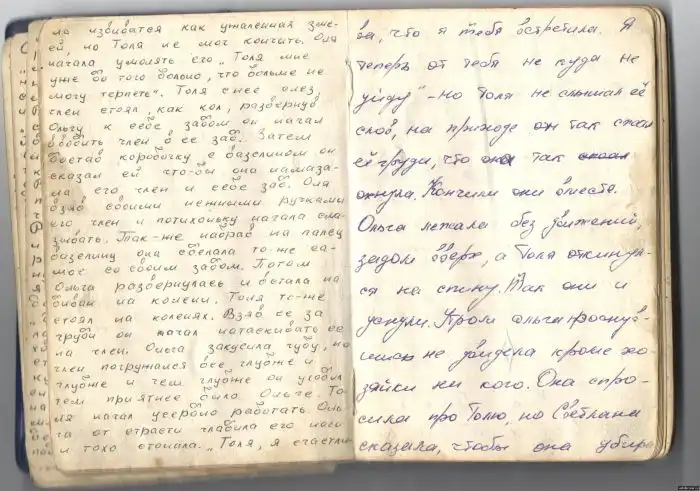 но извиватся как ужаленная зме-
ей, но Толя не мог кончить. Оля
начала умолять его „Толя мне
уже до того больно, что больше не
могу терпеть". Толя с нее слез,
член стоял, как кол, развернув
Ольгу к себе задом он начал
вводить член в ее зад. Затем
достав коробочку с вазелином он
сказал ей что-бы она намаза-
ла его член и себе зад. Оля
взяв своими нежными ручками
его член и потихоньку начала сма-
зывать. Так-же набрав на палец
вазелину она сделала то-же са-
мое со своим задом. Потом
Ольга развернулась и встала на
диван на колени. Толя то-же
стоял на коленях. Взяв ее за
груди он начал натаскивать ее
на член. Ольга закусила губу, но
член погружался все глубже и
глубже и чем глубже он уходил
тем приятнее было Ольге. То-
ля начал усердно работать. Оль
га от страсти гладила его ноги
и тихо стонала. „Толя, я счастли
ва, что я тебя встретила. Я
теперь от тебя не куда не
уйду" – Но Толя не слышал её
слов, на приходе он так сжал
её груди, что она так
охнула. Кончили они вместе.
Ольга лежала без движений,
задом вверх, а Толя откинул-
ся на спину. Так они и
уснули. Утром Ольга проснув-
шись не увидела кроме хо-
зяйки ни кого. Она спро-
сила про Толю, но Светлана
сказала, чтобы она убира